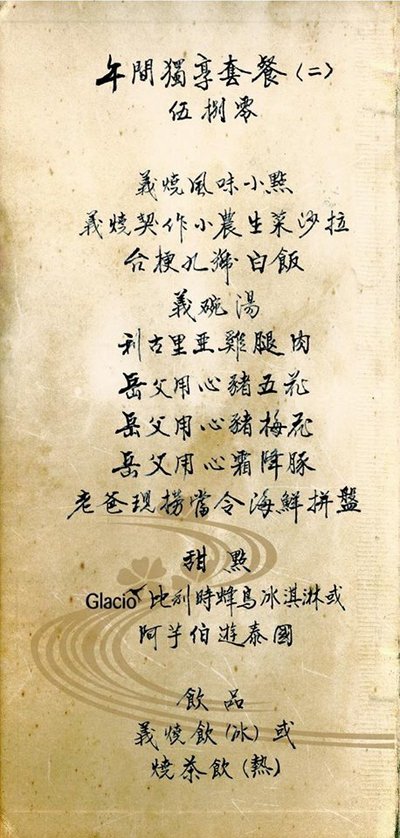 午間獨享套餐(二)
伍捌零
義燒風味小點
義燒契作小農生菜沙拉
台梗九號白飯
義碗湯
利古里亞雞腿肉
岳父用心豬五花
岳父用心豬梅花
岳父用心霜降豚
老爸現撈當令海鮮拼盤
甜點
Glacio 比利時蜂鳥冰淇淋或
阿芋伯遊泰國
飲品
義燒飲(冰)或
燒茶飲(熱)